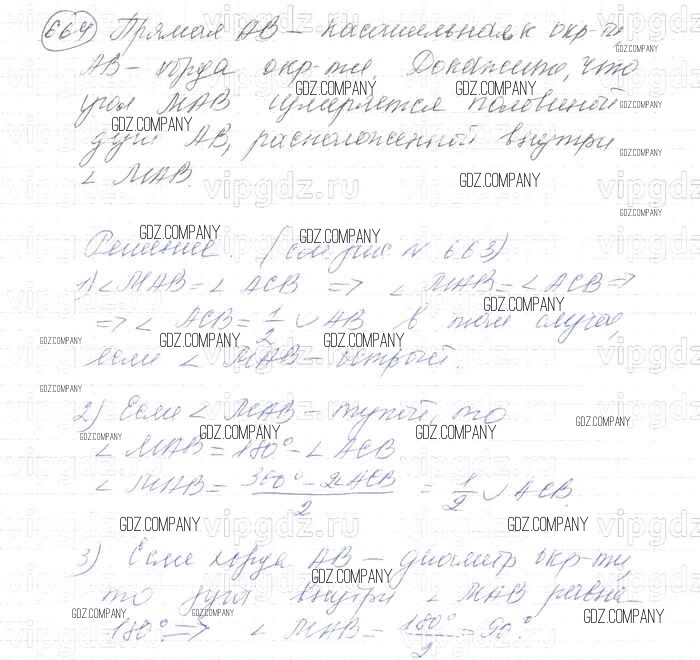 664 Прямая АВ – касательная к окр-ти
АВ – хорда окр-ти. Докажите, что
угол МАВ измеряется половиной
дуги АВ, расположенной внутри
∠ МАВ.
Решение. (см рис N 663)
1) ∠ МАВ = ∠ АСВ => ∠ МАВ = ∠ АСВ =>
=> ∠ АСВ = 1/2 ∪ АВ в том случае,
если ∠ МАВ – острый.
2) Если ∠ МАВ – тупой, то
∠ МАВ = 180° - ∠ АСВ
∠ МАВ = 360° - 2∠АСВ / 2 = 1/2 ∪ АСВ.
3) Если хорда АВ – диаметр окр-ти,
то дуга внутри ∠ МАВ равна
180° => ∠ МАВ = 180°/2 = 90°.
GDZ.COMPANY
vipgdz.ru